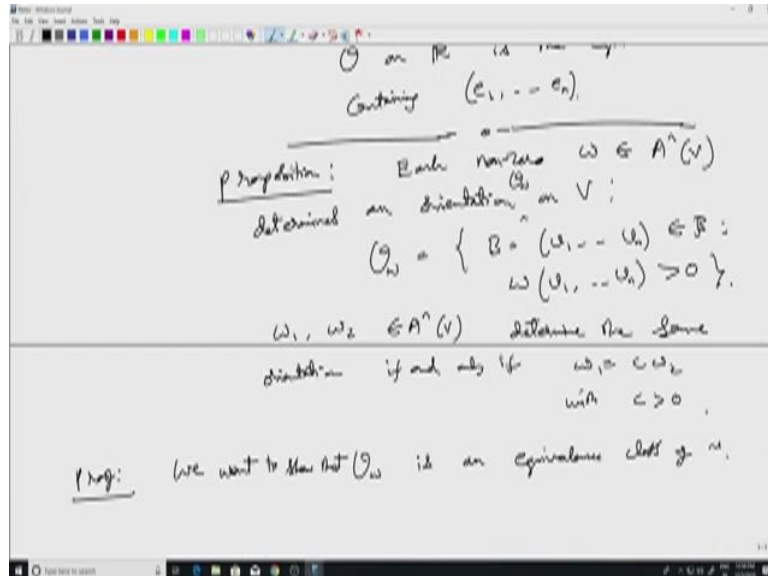 O on R is the
Containing (e₁, -- eₙ).
Proposition: Each nonzero ω ∈ Aⁿ(V)
determines an orientation O_ω on V :
O_ω = { B = (v₁ -- vₙ) ∈ B :
ω(v₁, -- vₙ) > 0 }.
ω₁, ω₂ ∈ Aⁿ(V) determine the same
orientation if and only if ω₁ = c ω₂
with c > 0 .
Proof: We want to show that O_ω is an equivalence class of ~.